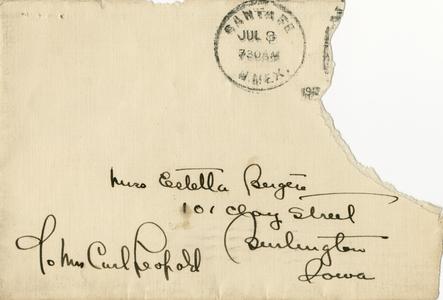 SANTA FE
JUL 8
730AM
N. MEX.
191
Miss Estella Bergere
101 Clay Street
Burlington
Iowa
To Mrs Carl Leopold